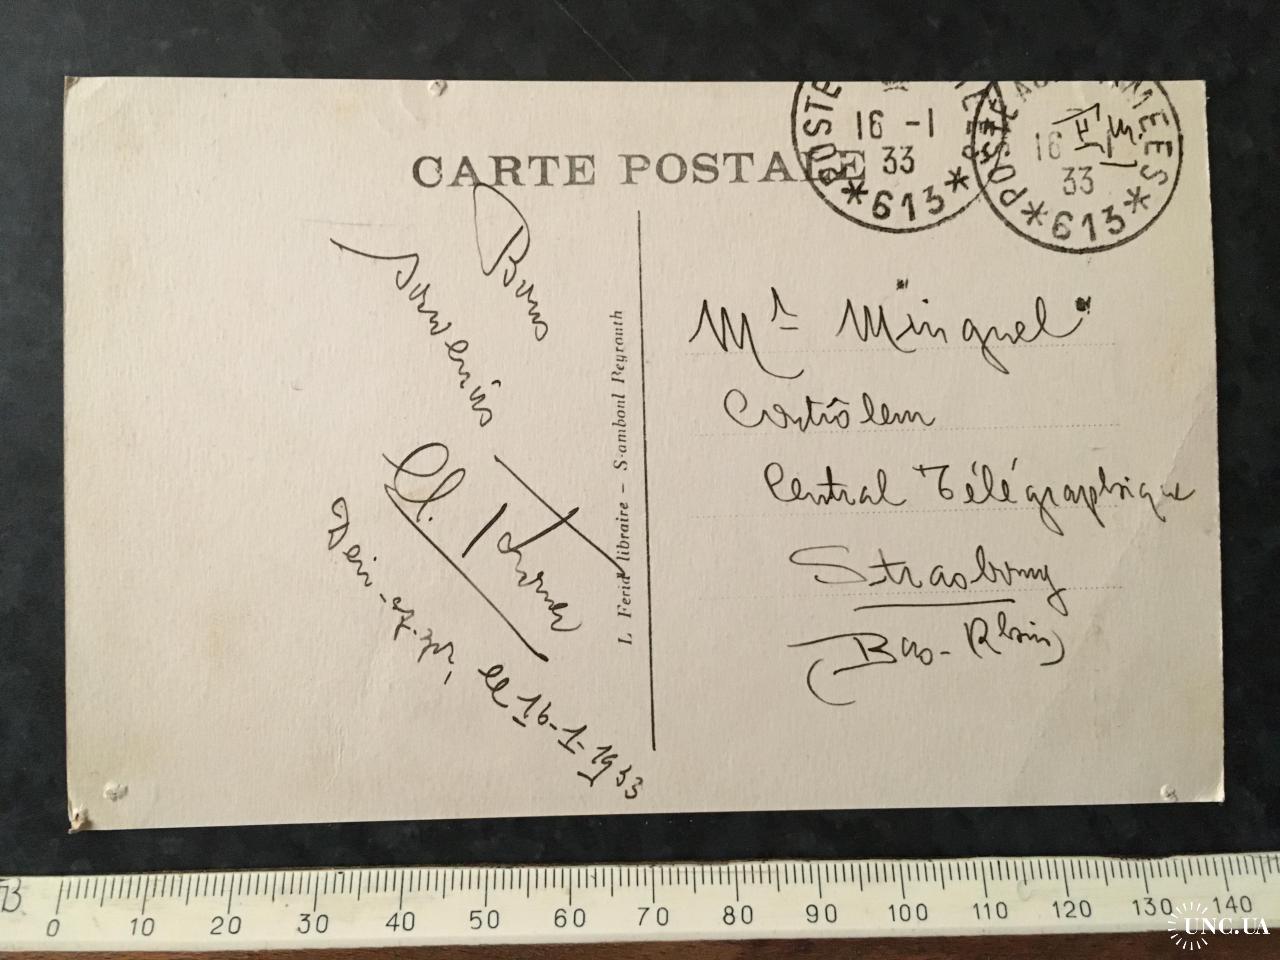 CARTE POSTALE
POSTE AUX ARMEES
16 -1
33
*613*
POSTE AUX ARMEES
16
33
*613*
Bons
souvenirs
Deir-ez-zor, le 16-1-1933
L. Ferid libraire - S.amboul Beyrouth
Mr Minguel
Central Télégraphique
Strasbourg
(Bas-Rhin)
0 10 20 30 40 50 60 70 80 90 100 110 120 130 140
UNC.UA